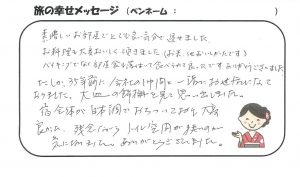 旅の幸せメッセージ(ペンネーム: )
素晴しいお部屋でとても気分よく過せました
お料理も大変おいしく頂きました(お米、地おいしかったです)
バイキングでなく部屋でも席はまで食べられるのは良いですありがとうございました
たしか、35年前に会社の仲間と一緒にお世話になって
おりました。大皿の飾物を見て思い出しました。
宿全体が日本調でおちついており大変
良かった、残念ながらトイレ空間が狭いのが
気になりました。ありがとうございました。